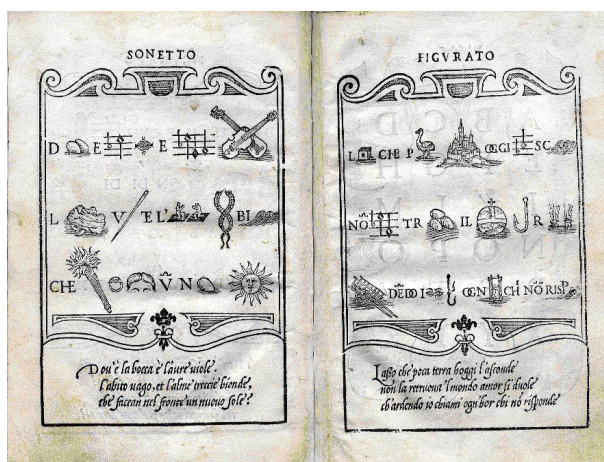 SONETTO
D E E
L V E L' BI
CHE ṼN N
Dou'è la bocca è l'aure uiole.
l'abito uago, et l'alme treccie bionde,
che faccan nel fronte un nuouo sole?
FIGVRATO
L CHE P OGGI SC
NÕ TR IL R
DẼDO I OGN CHI NÕ RISP
Laßo che poca terra hoggi l'asconde
non la retruoua l mondo amor si duole
ch'ardendo io chiami ogn'hor chi nõ risponde